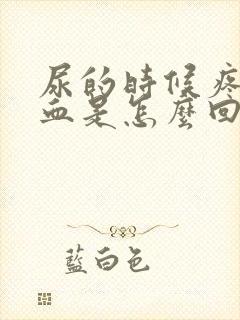 尿的時候疼
血是怎麼回
藍白色